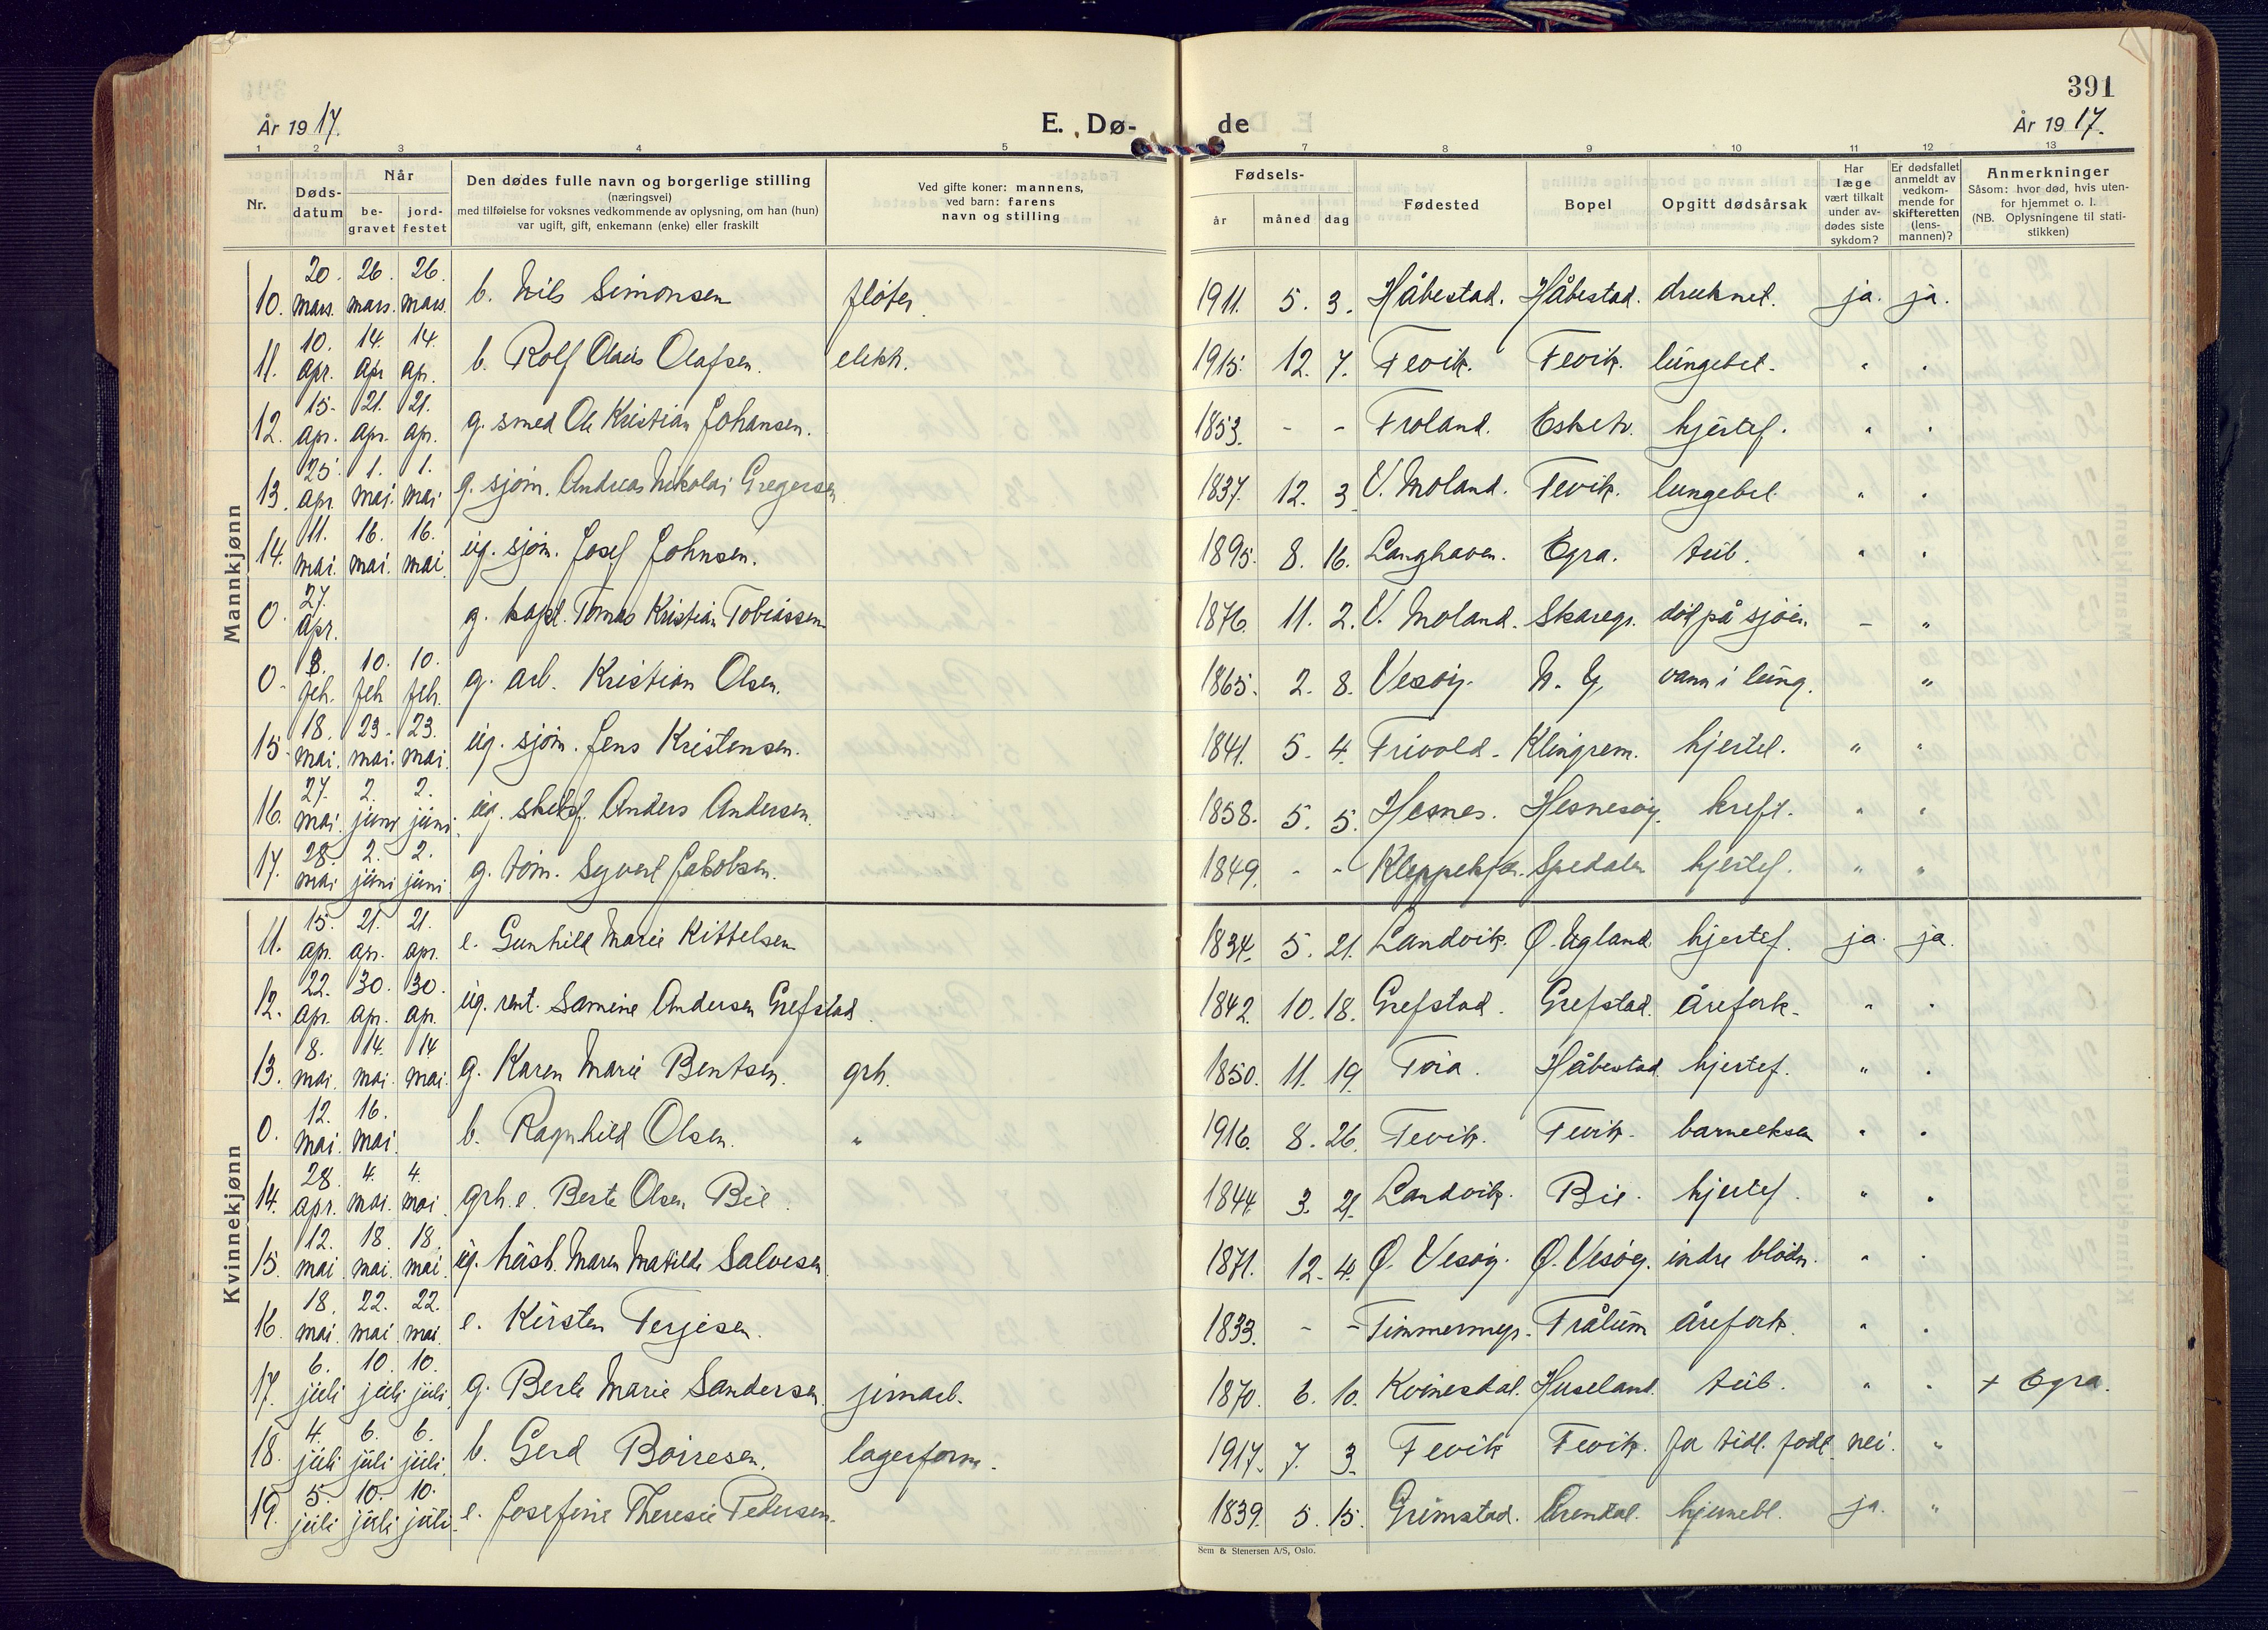 391
År 1917.
E. Dø-
de
År 1917.
1 2 3 4 5 7 8 9 10 11 12 13
Nr.
Døds-
datum
Når
be-
gravet
jord-
festet
Den dødes fulle navn og borgerlige stilling
(næringsvei)
med tilføielse for voksnes vedkommende av oplysning, om han (hun)
var ugift, gift, enkemann (enke) eller fraskilt
Ved gifte koner: mannens,
ved barn: farens
navn og stilling
Fødsels-
år måned dag
Fødested
Bopel
Opgitt dødsårsak
Har
læge
vært tilkalt
under av-
dødes siste
sykdom?
Er dødsfallet
anmeldt av
vedkom-
mende for
skifteretten
(lens-
mannen)?
Anmerkninger
Såsom: hvor død, hvis uten-
for hjemmet o. l.
(NB. Oplysningene til stati-
stikken)
Mannkjønn
10. 20. mars. 26. mars. 26. mars. b. Nils Simonsen fløter 1911. 5. 3. Håbestad. Håbestad. druknet. ja. ja.
11. 10. apr. 14. apr 14. ap. b. Rolf Olaus Olafsen. elekt. 1915. 12. 7. Fevik. Fevik. lungebet. " "
12. 15. apr. 21. apr. 21. ap. g. smed Ole Kristian Johansen. 1853. - - Froland. hjertef. " "
13. 25. apr. 1. mai. 1. mai g. sjøm. Andreas Nikolai Gregersen 1837. 12. 3 V. Moland. Fevik. lungebet. " "
14. 11. mai. 16. mai. 16. mai. ug. sjøm. Josef Johnsen. 1895. 8. 16. Langhaven. Egra. tub. " "
0. 27. apr. g. kapt. Tomas Kristian Tobiassen 1876. 11. 2. V. Moland. Skaregr. død på sjøen. - "
0. 8. feb. 10. feb 10. feb. g. arb. Kristian Olsen. 1865. 2. 8. Vesøy. N. G. vann i lung. "
15. 18. mai. 23. mai. 23. mai. ug. sjøm. Jens Kristensen. 1841. 5. 4. Frivold. Klingrem. hjertef. " "
16. 27. mai. 2. juni 2. juni. ug. Anders Andersen. 1858. 5. 5. Hesnes. Hesnesøy. kreft. " "
17. 28. mai 2. juni 2. juni g. tøm. Syvert Jakobsen. 1849. - - Spedalen hjertef. " "
Kvinnekjønn
11. 15. ap. 21. ap. 21. apr. e. Gunhild Marie Kittelsen 1834. 5. 21. Landvik. Ø. Ugland. hjertef. ja. ja.
12. 22. apr. 30. ap. 30. ap. ug. rent. Samine Andersen Grefstad 1842. 10. 18. Grefstad. Grefstad. årefork. " "
13. 8. mai. 14. mai. 14 mai. g. Karen Marie Bentsen. grh. 1850. 11. 19. Håbestad. hjertef. " "
0. 12. mai. 16. mai. b. Ragnhild Olsen. " 1916. 8. 26. Fevik. Fevik. " "
14. 28. apr. 4. mai. 4. mai. grh.e. Berte Olsen Bie. 1844. 3. 21. Landvik. Bie. hjertef. " "
15. 12. mai 18. mai. 18. mai. ug. Maren Matilde Salvesen 1871. 12. 4. Ø. Vesøy. Ø. Vesøy. indre blødn. " "
16. 18. mai. 22. mai 22. mai e. Kirsten Terjesen. 1833. - - Timmermyr. Trålum årefork. " "
17. 6. juli 10. juli 10. juli g. Berte Marie Sandersen jernarb. 1870. 6. 10. Kvinesdal. Huseland. tub. " " + Egra.
18. 4. juli 6. juli 6. juli. b. Gerd Børresen. lagerform. 1917. 7. 3. Fevik Fevik. for tidl. født. nei. "
19. 5. juli 10. juli 10. juli. e. Josefine Theresie Pedersen. 1839. 5. 15. Grimstad. Arendal. hjernebl. ja. "
Sem & Stenersen A/S, Oslo.